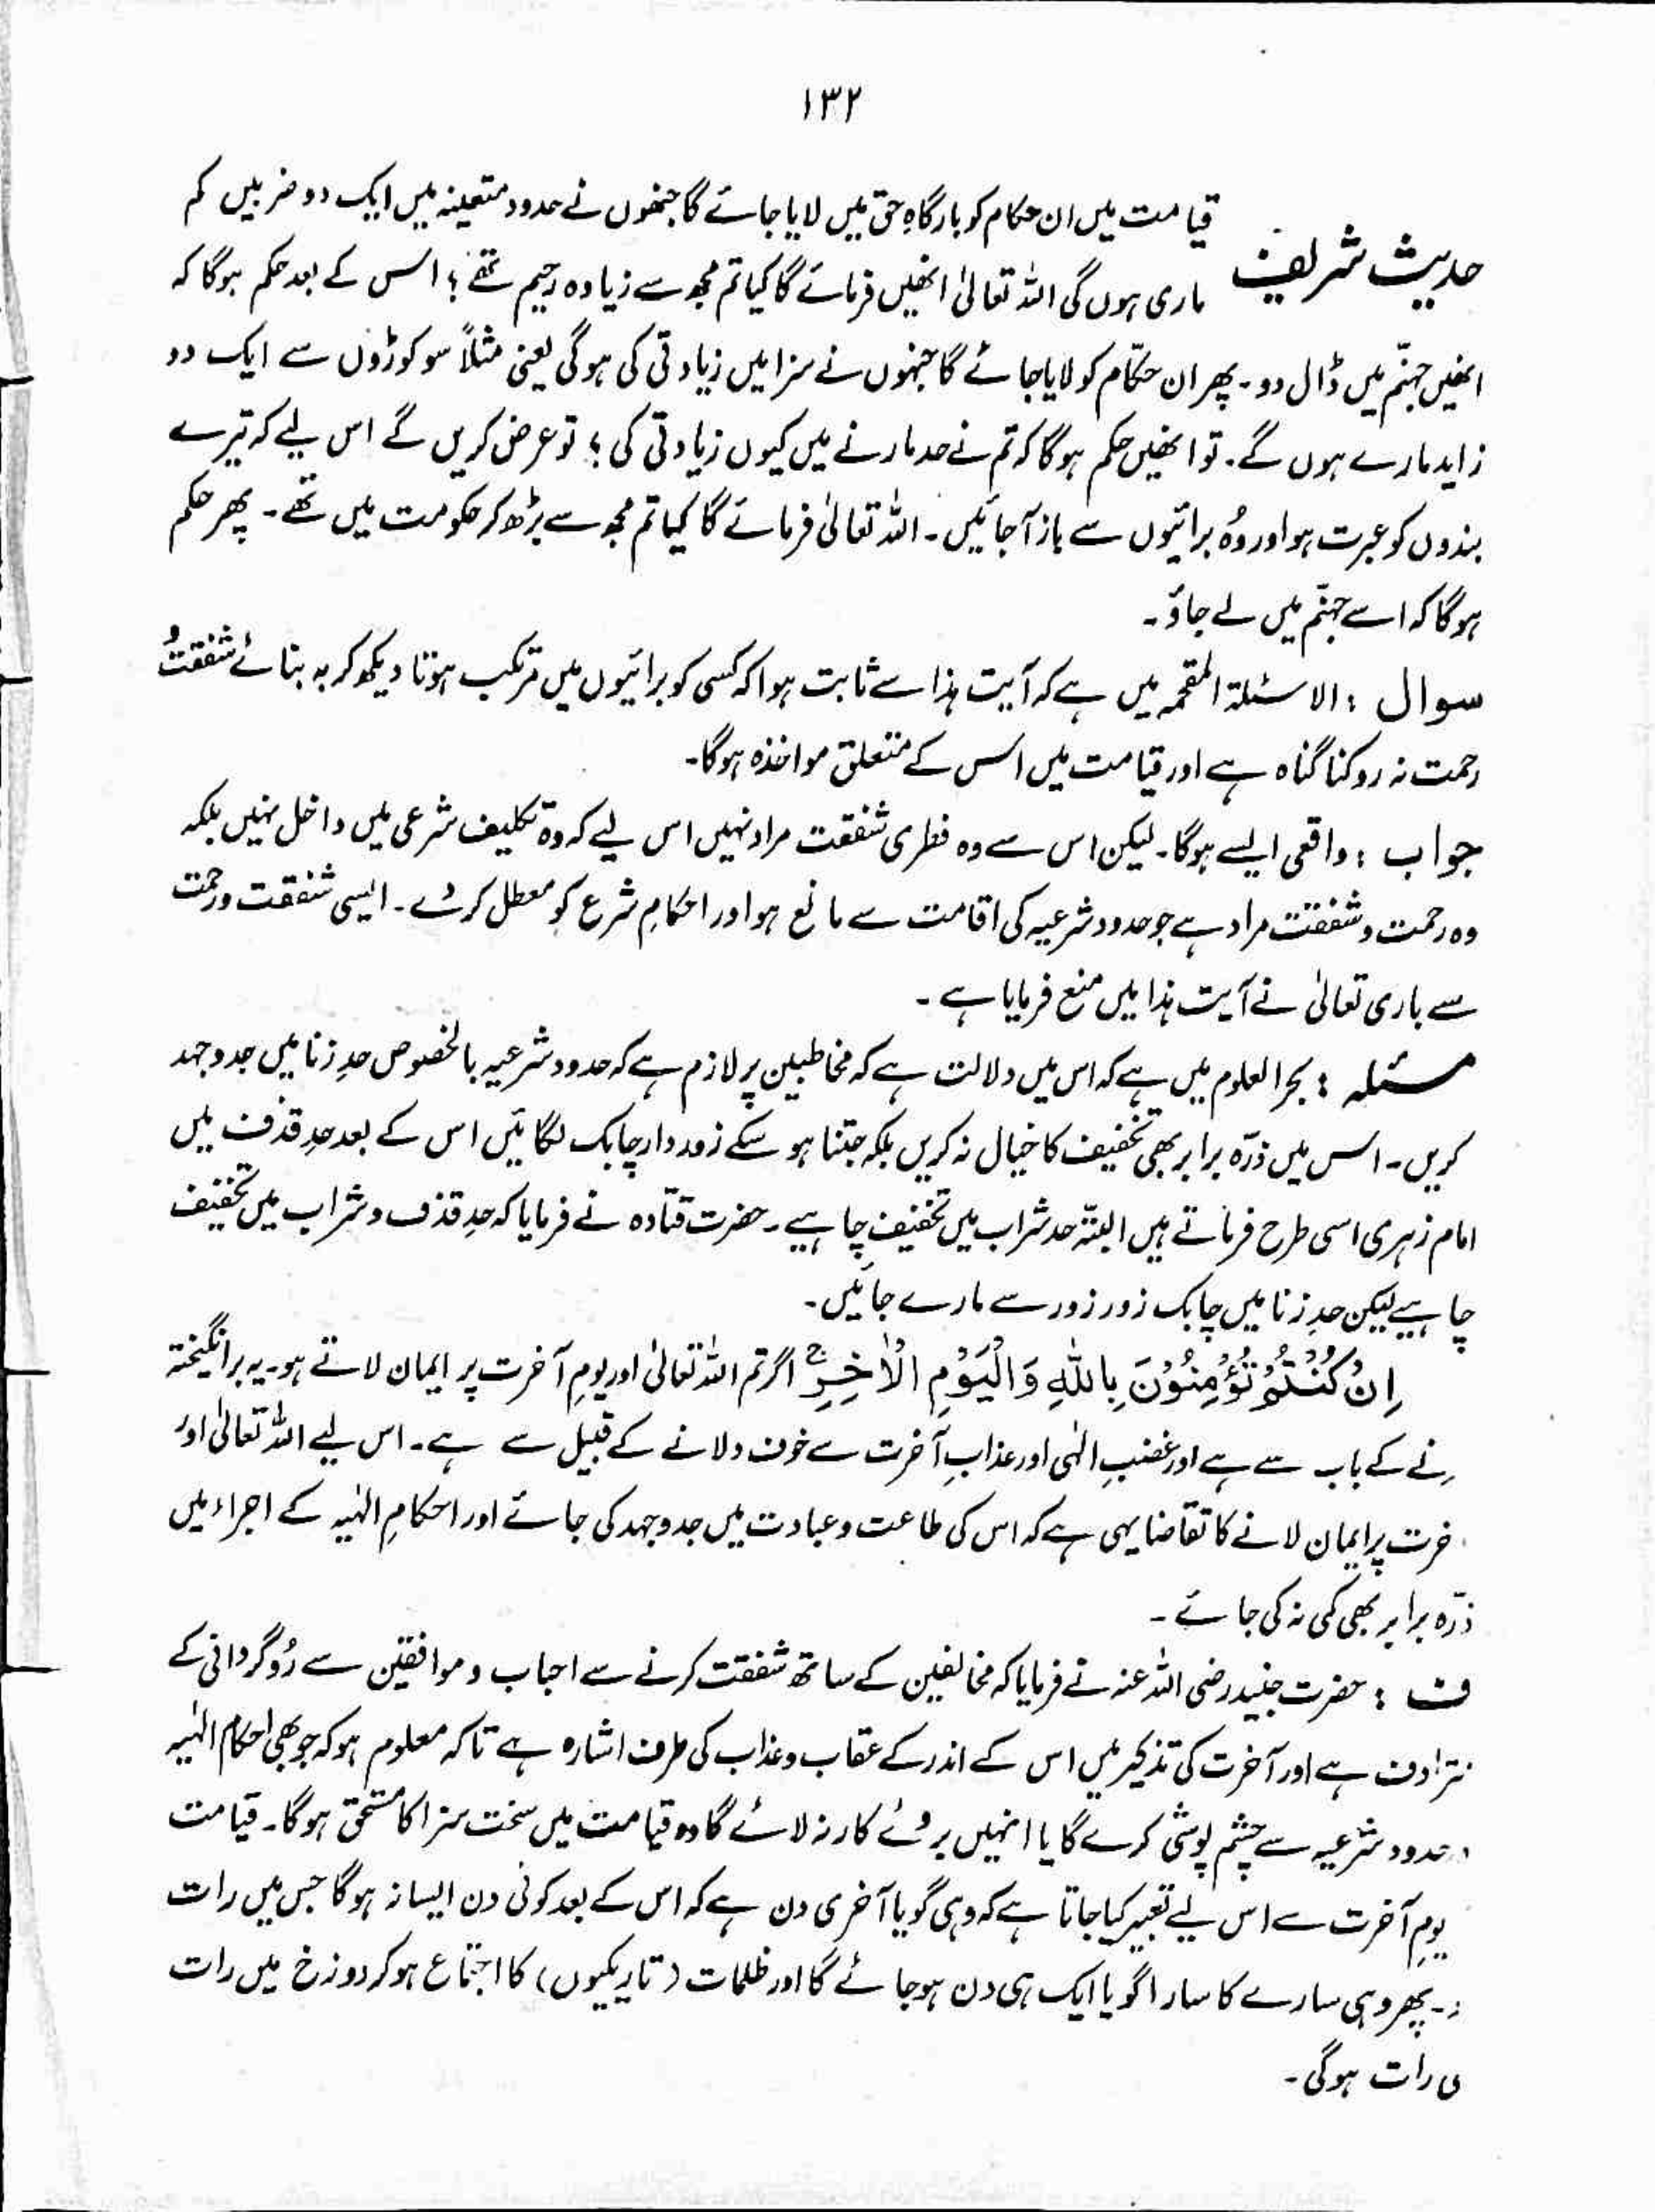 ۱۳۲
حدیث شریف
قیامت میں ان حکام کو بارگاہِ حق میں لایا جائے گا جنھوں نے حدود متعینہ میں ایک دو ضربیں کم
ماری ہوں گی اللہ تعالیٰ انھیں فرمائے گا کیا تم مجھ سے زیادہ رحیم تھے؟ اس کے بعد حکم ہوگا کہ
انھیں جہنّم میں ڈال دو۔ پھر ان حکّام کو لایا جائے گا جنہوں نے سزا میں زیادتی کی ہوگی یعنی مثلاً سو کوڑوں سے ایک دو
زاید مارے ہوں گے۔ تو انھیں حکم ہوگا کہ تم نے حد مارنے میں کیوں زیادتی کی؟ تو عرض کریں گے اس لیے کہ تیرے
بندوں کو عبرت ہو اور وُہ برائیوں سے باز آ جائیں۔ اللہ تعالیٰ فرمائے گا کیا تم مجھ سے بڑھ کر حکومت میں تھے۔ پھر حکم
ہوگا کہ اسے جہنّم میں لے جاؤ۔
سوال : الاسئلۃ المقحمہ میں ہے کہ آیت ہذا سے ثابت ہوا کہ کسی کو برائیوں میں مرتکب ہوتا دیکھ کر بہ بنائے شفقت و
رحمت نہ روکنا گناہ ہے اور قیامت میں اس کے متعلق مواخذہ ہوگا۔
جواب : واقعی ایسے ہوگا۔ لیکن اس سے وہ فطری شفقت مراد نہیں اس لیے کہ وہ تکلیف شرعی میں داخل نہیں بلکہ
وہ رحمت و شفقت مراد ہے جو حدود شرعیہ کی اقامت سے مانع ہو اور احکامِ شرع کو معطل کر دے۔ ایسی شفقت و رحمت
سے باری تعالیٰ نے آیت ہذا میں منع فرمایا ہے۔
مسئلہ : بحر العلوم میں ہے کہ اس میں دلالت ہے کہ مخاطبین پر لازم ہے کہ حدود شرعیہ بالخصوص حدِ زنا میں جدوجہد
کریں۔ اس میں ذرّہ برابر بھی تخفیف کا خیال نہ کریں بلکہ جتنا ہو سکے زوردار چابک لگائیں اس کے بعد حدِ قذف میں
امام زہری اسی طرح فرماتے ہیں البتہ حد شراب میں تخفیف چاہیے۔ حضرت قتادہ نے فرمایا کہ حدِ قذف و شراب میں تخفیف
چاہیے لیکن حدِ زنا میں چابک زور زور سے مارے جائیں۔
اِنْ کُنْتُمْ تُؤْمِنُوْنَ بِاللّٰہِ وَالْیَوْمِ الْاٰخِرِ ۚ اگر تم اللہ تعالیٰ اور یومِ آخرت پر ایمان لاتے ہو۔ یہ برانگیختہ
رنے کے باب سے ہے اور غضبِ الٰہی اور عذابِ آخرت سے خوف دلانے کے قبیل سے ہے۔ اس لیے اللہ تعالیٰ اور
خرت پر ایمان لانے کا تقاضا یہی ہے کہ اس کی طاعت و عبادت میں جدوجہد کی جائے اور احکامِ الٰہیہ کے اجراء میں
ذرّہ برابر بھی کمی نہ کی جائے۔
ف : حضرت جنید رضی اللہ عنہ نے فرمایا کہ مخالفین کے ساتھ شفقت کرنے سے احباب و موافقین سے رُوگردانی کے
ترادف ہے اور آخرت کی تذکیر میں اس کے اندر کے عقاب و عذاب کی طرف اشارہ ہے تاکہ معلوم ہو کہ جو بھی احکام الٰہیہ
حدود شرعیہ سے چشم پوشی کرے گا یا انہیں بروئے کار نہ لائے گا وہ قیامت میں سخت سزا کا مستحق ہوگا۔ قیامت
یومِ آخرت سے اس لیے تعبیر کیا جاتا ہے کہ وہی گویا آخری دن ہے کہ اس کے بعد کوئی دن ایسا نہ ہوگا جس میں رات
۔ پھر وہی سارے کا سارا گویا ایک ہی دن ہو جائے گا اور ظلمات (تاریکیوں) کا اجتماع ہو کر دوزخ میں رات
ی رات ہوگی۔